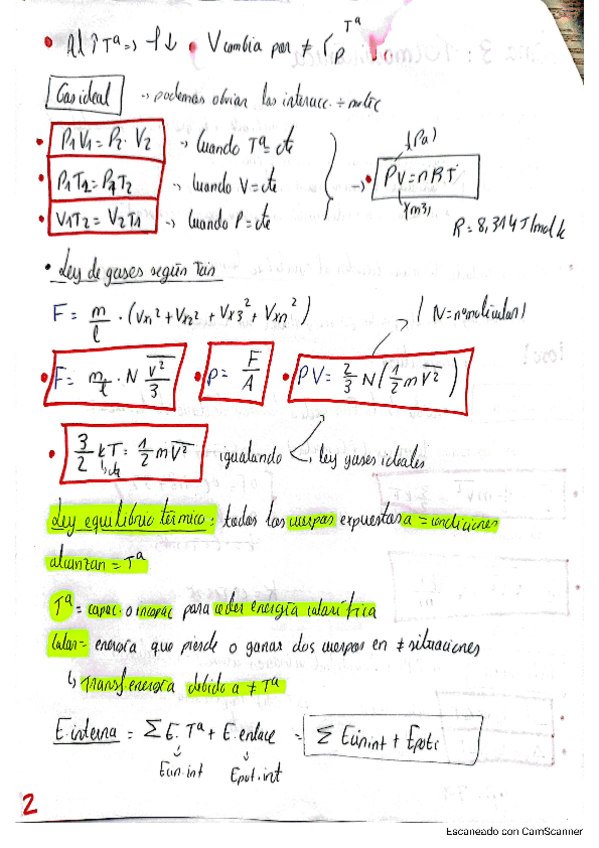 • Al ↑Tª => ρ↓ • V cambia por ≠ Tª P
Gas ideal → podemos obviar las interacc. ÷ molec
• P1V1 = P2 · V2 → Cuando Tª = cte
• P1T2 = P2T2 → Cuando V = cte → • PV = nRT (Pa)
• V1T2 = V2T1 → Cuando P = cte (m3) R = 8,314 J/mol k
• Ley de gases según
F = m/l · (Vx1² + Vx2² + Vx3² + Vxn²)
(N = nº moléculas)
• F = m/l · N v²/3 • P = F/A • PV = 2/3 N(1/2 m v²)
• 3/2 kT = 1/2 m v² igualando ley gases ideales
cte
Ley equilibrio térmico: todos los cuerpos expuestos a = condiciones
alcanzan = Tª
Tª = capac. o incapac para ceder energía calorífica
Calor = energía que pierde o ganas dos cuerpos en ≠ situaciones
↳ Transf energía debido a ≠ Tª
E. interna = Σ E. Tª + E. enlace = Σ Ecin int + Epot i
Ecin. int Epot. int
2
Escaneado con CamScanner